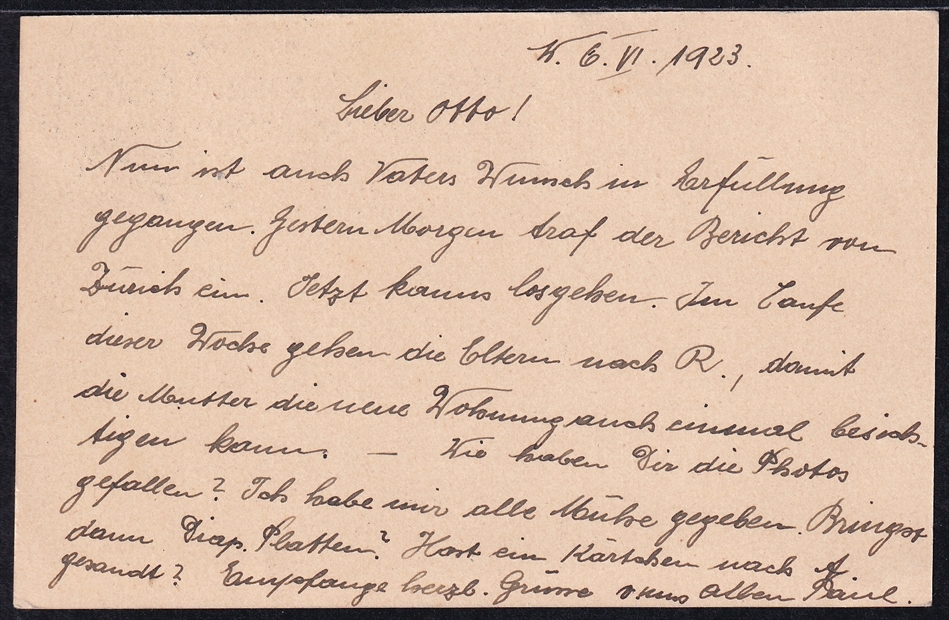 W. 6. VI. 1923.
Lieber Otto!
Nun ist auch Vaters Wunsch in Erfüllung
gegangen. Gestern Morgen traf der Bericht von
Zürich ein. Jetzt kanns losgehen. Im Laufe
dieser Woche gehen die Eltern nach R., damit
die Mutter die neue Wohnung auch einmal besich-
tigen kann. — Wie haben Dir die Photos
gefallen? Ich habe mir alle Mühe gegeben. Bringst
dann Diap. Platten? Hast ein Kärtchen nach A
gesandt? Empfange herzl. Grüsse von uns allen Paul.